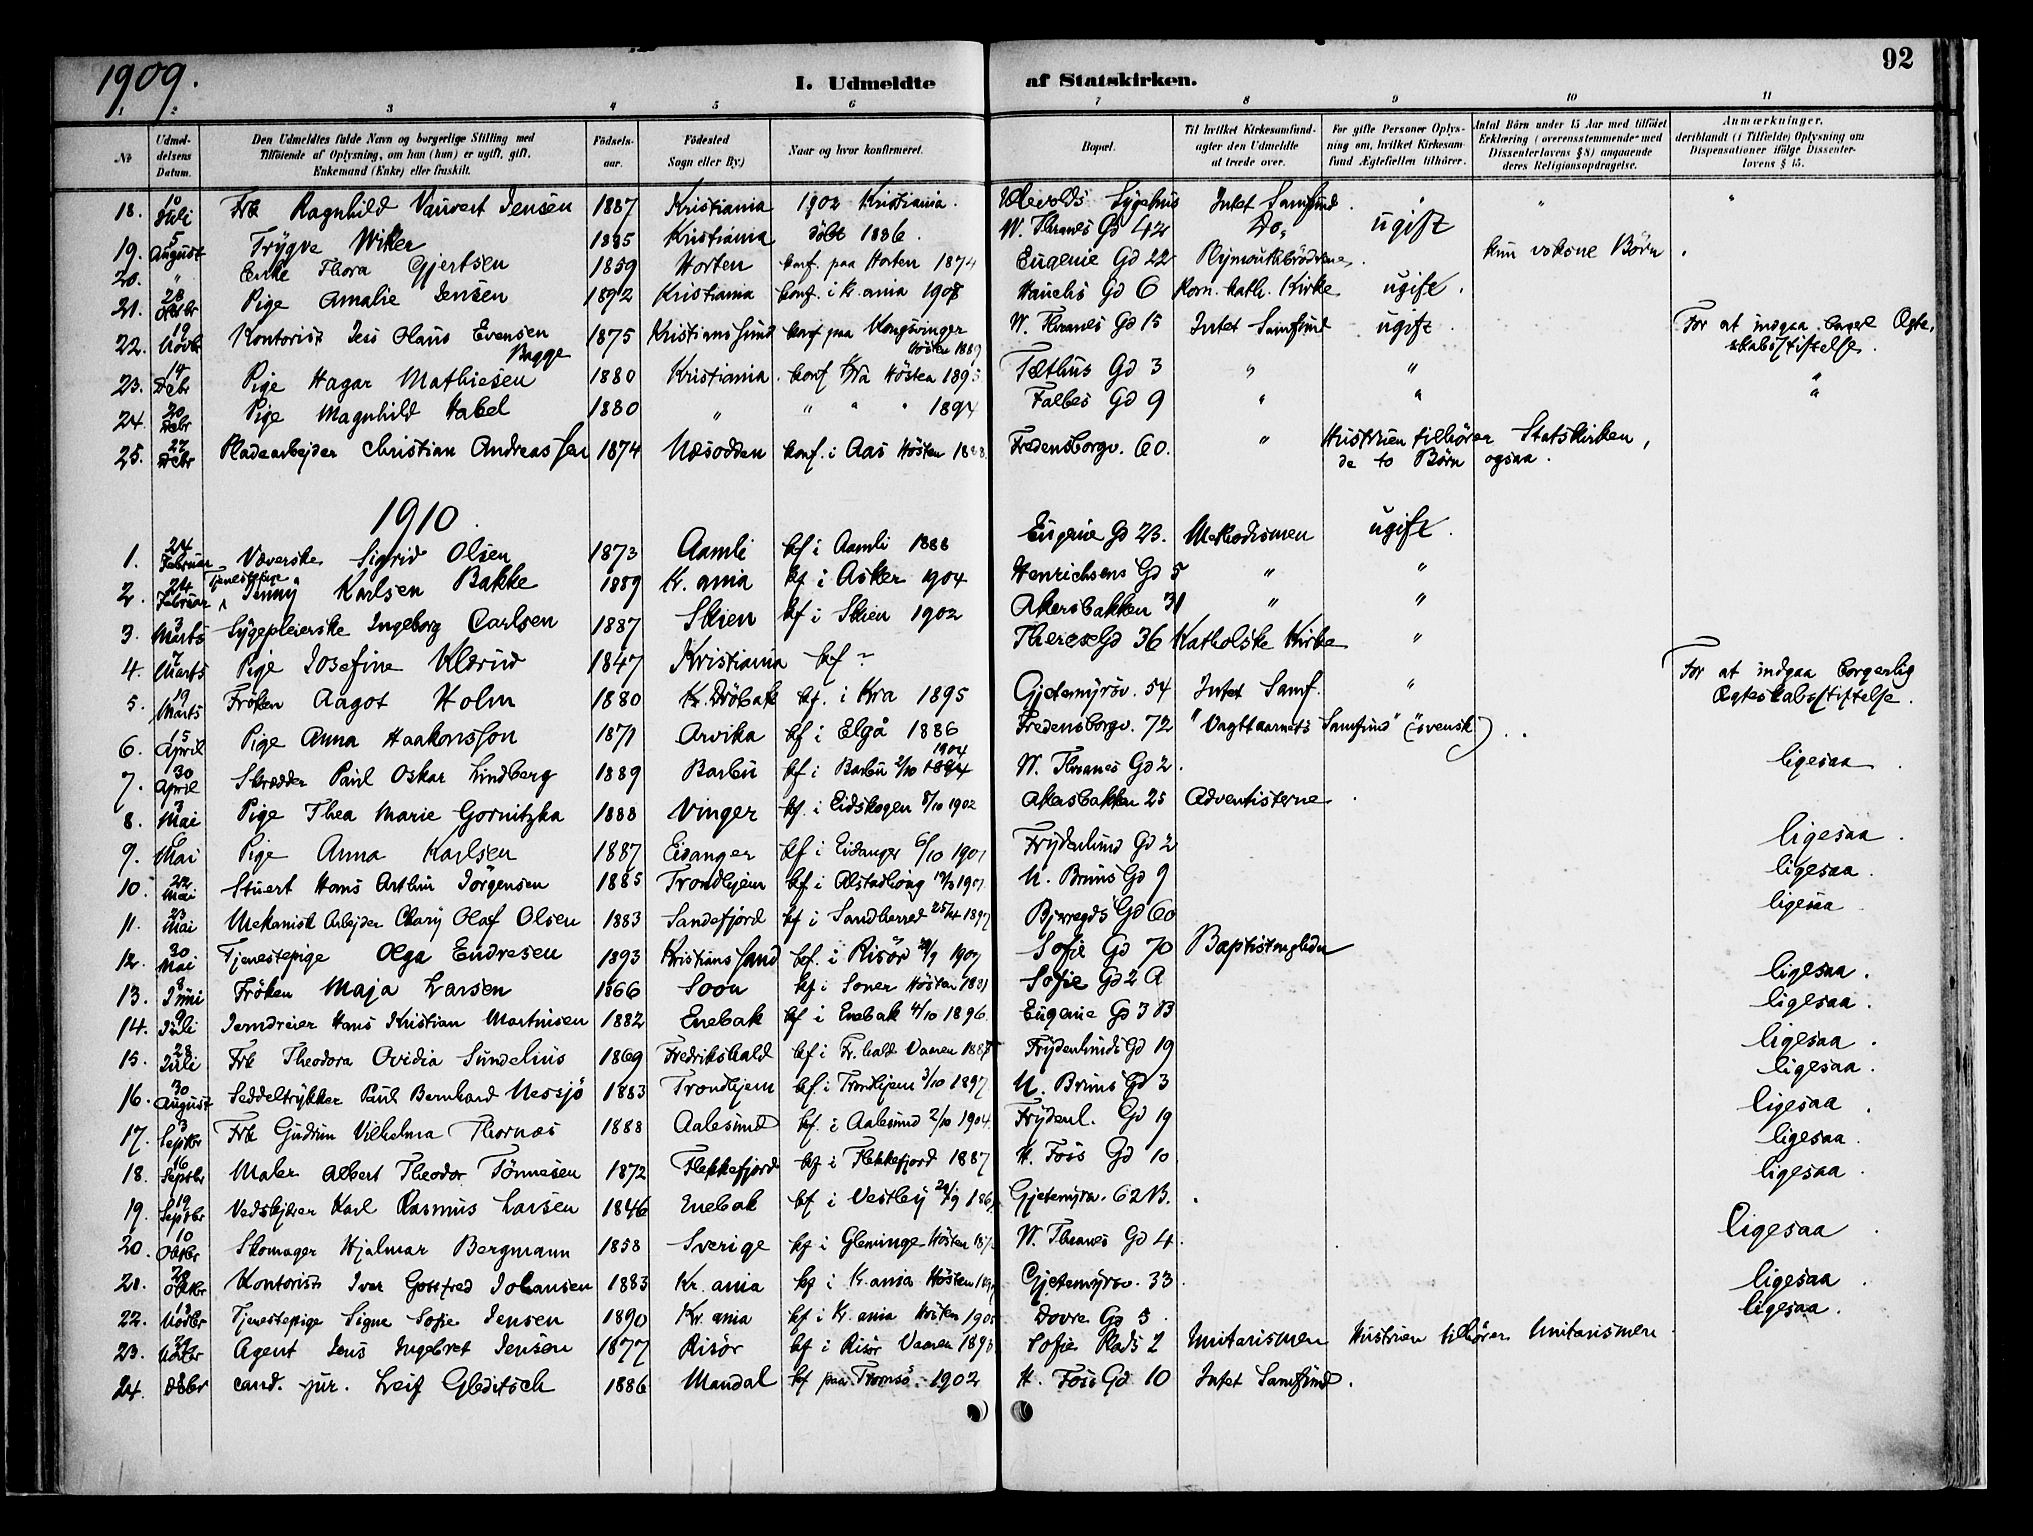 1909.
I. Udmeldte af Statskirken.
92
1 2 3 4 5 6 7 8 9 10 11
No Udmeldelsens Datum. Den Udmeldtes fulde Navn og borgerlige Stilling med Tilføiende af Oplysning, om han (hun) er ugift, gift, Enkemand (Enke) eller fraskilt. Fødselsaar. Fødested Sogn eller By) Naar og hvor konfirmeret. Bopæl. Til hvilket Kirkesamfund agter den Udmeldte at træde over. For gifte Personer Oplysning om, hvilket Kirkesamfund Ægtefællen tilhører. Antal Børn under 15 Aar med tilføiet Erklæring (overensstemmende med Dissenterlovens § 8) angaaende deres Religionsopdragelse. Anmærkninger, deriblandt (i Tilfælde) Oplysning om Dispensationer ifølge Dissenterlovens § 15.
18. Juli Frk Ragnhild Vauvert Jensen 1887 Kristiania 1902 Kristiania. Ullevolds Sygehus Intet Samfund. " " "
19. 5 August Trygve Wiker 1885 Kristiania døbt 1886. W. Thranes Gd 42 Do, ugift
20. " Enke Thora Gjertsen 1859 Horten konf. paa Horten 1874 Eugenie Gd 22 Plymouthbrødrene. kun voksne Børn.
21. 28 Oktbr Pige Amalie Jensen 1892 Kristiania konf. i Kr.ania 1907 Hauchs Gd 6 Rom. kath. Kirke ugift.
22. 19 Novbr Kontorist Jess Olaus Evensen Bagge 1875 Kristianssund konf paa Kongsvinger Høsten 1889 W. Thranes Gd 15 Intet Samfund ugift. For at indgaa borgl Ægteskabsstiftelse.
23. 14 Debr Pige Hagar Mathiesen 1880 Kristiania. konf Kra Høsten 1895 Tæthus Gd 3 " " "
24. 20 Debr Pige Magnhild Habel 1880 " " " " 1894 Falbes Gd 9 " " "
25. 27 Debr Pladearbejder Christian Andreassen 1874 Næsodden konf. i Aas Høsten 1888. Fredensborgv. 60. " Hustruen tilhører Statskirken, de to Børn ogsaa.
1910.
1. 24 Februar Væverske Sigrid Olsen 1873 Aamli kf i Aamli 1888 Eugenie Gd 23. Methodismen ugift.
2. 24 Februar Tjenestepige Jenny Karlsen Bakke 1889 Kr.ania kf i Asker 1904 Henrichsens Gd 5 " "
3. 3 Marts Sygepleierske Ingeborg Carlsen 1887 Skien kf i Skien 1902 Akersbakken 31 " "
4. 7 Marts Pige Josefine Klærud 1847 Kristiania kf ? Therese Gd 36 Katholske Kirke "
5. 19 Marts Frøken Aagot Holm 1880 Kr. Drøbak kf. i Kra 1895 Gjetemyrsv. 54 Intet Samf. " For at indgaa borgerlig Ægteskabsstiftelse.
6. 15 April Pige Anna Haakonsson 1871 Arvika kf i Elgå 1886 Fredensborgv. 72 "Vagttaarnets Samfund" (svensk) . .
7. 30 April Skrædder Paul Oskar Lindberg 1889 Barbu kf i Barbu 2/10 1904 W. Thranes Gd 2. ligesaa.
8. 3 Mai Pige Thea Marie Gornitzka 1888 Vinger kf. i Eidskogen 5/10 1902 Akersbakken 25 Adventisterne.
9. Mai Pige Anna Karlsen 1887 Eidanger kf i Eidanger 6/10 1901 Frydenlund Gd 2 ligesaa.
10. 22 Mai Stuert Hans Arthur Jörgensen 1885 Trondhjem kf. i Alstadhoug 1901 U. Bruns Gd 9 ligesaa.
11. 23 Mai Mekanisk Arbejder Chary Olaf Olsen 1883 Sandefjord kf i Sandherred 25/4 1897 Bjerregds Gd 60 ligesaa
12. 30 Mai Tjenestepige Olga Endresen 1893 Kristianssand kf. i Risør 1907 Sofie Gd 70 Baptistmgheden
13. 8 Juni Frøken Maja Larsen 1866 Soon kf i Soner Høsten 1881 Sofie Gd 2 A ligesaa.
14. 9 Juli Jerndreier Hans Kristian Martinsen 1882 Enebak kf i Enebak 4/10 1896. Eugenie Gd 3 B ligesaa.
15. 28 Juli Frk Theodora Ovidia Sundelius 1869 Fredrikshald kf i Fr.hald Vaaren 1885 Frydenlunds Gd 19 ligesaa.
16. 30 August Seddeltrykker Paul Bernhard Nessjø 1883 Trondhjem kf. i Trondhjem 3/10 1897 U. Bruns Gd 3 ligesaa.
17. 3 Septbr Frk Gudrun Vilhelma Thornæs 1888 Aalesund kf. i Aalesund 2/10 1904. Frydenl. Gd 19 ligesaa.
18. 16 Septbr Maler Albert Theodor Tønnesen 1872 Flekkefjord kf i Flekkefjord 1887 H. Foss Gd 10 ligesaa.
19. 19 Septbr Vedskjærer Karl Rasmus Larsen 1846 Enebak kf i Vestby 29/9 186 Gjetemyrsv. 62 B. ligesaa.
20. 10 Oktbr Skomager Hjalmar Bergmann 1858 Sverige kf i Gleminge Høsten 187 W. Thranes Gd 4. Ligesaa.
21. 28 Oktbr Kontorist Ivar Gottfred Johansen 1883 Kr.ania kf i K.ania Høsten 189 Gjetemyrsv. 33. ligesaa.
22. 18 Novbr Tjenestepige Signe Sofie Jensen 1890 Kr.ania kf i Kr.ania Høsten 190 Dovre Gd 5. ligesaa.
23. 29 Novbr Agent Jens Ingebret Jensen 1877 Risør kf i Risør Vaaren 189 Sofie Plads 2 Unitarismen Hustruen tilhører Unitarismen
24. Debr cand. jur. Leif Gleditsch 1886 Mandal kf paa Tromsø. 1902 H. Foss Gd 10 Intet Samfund.